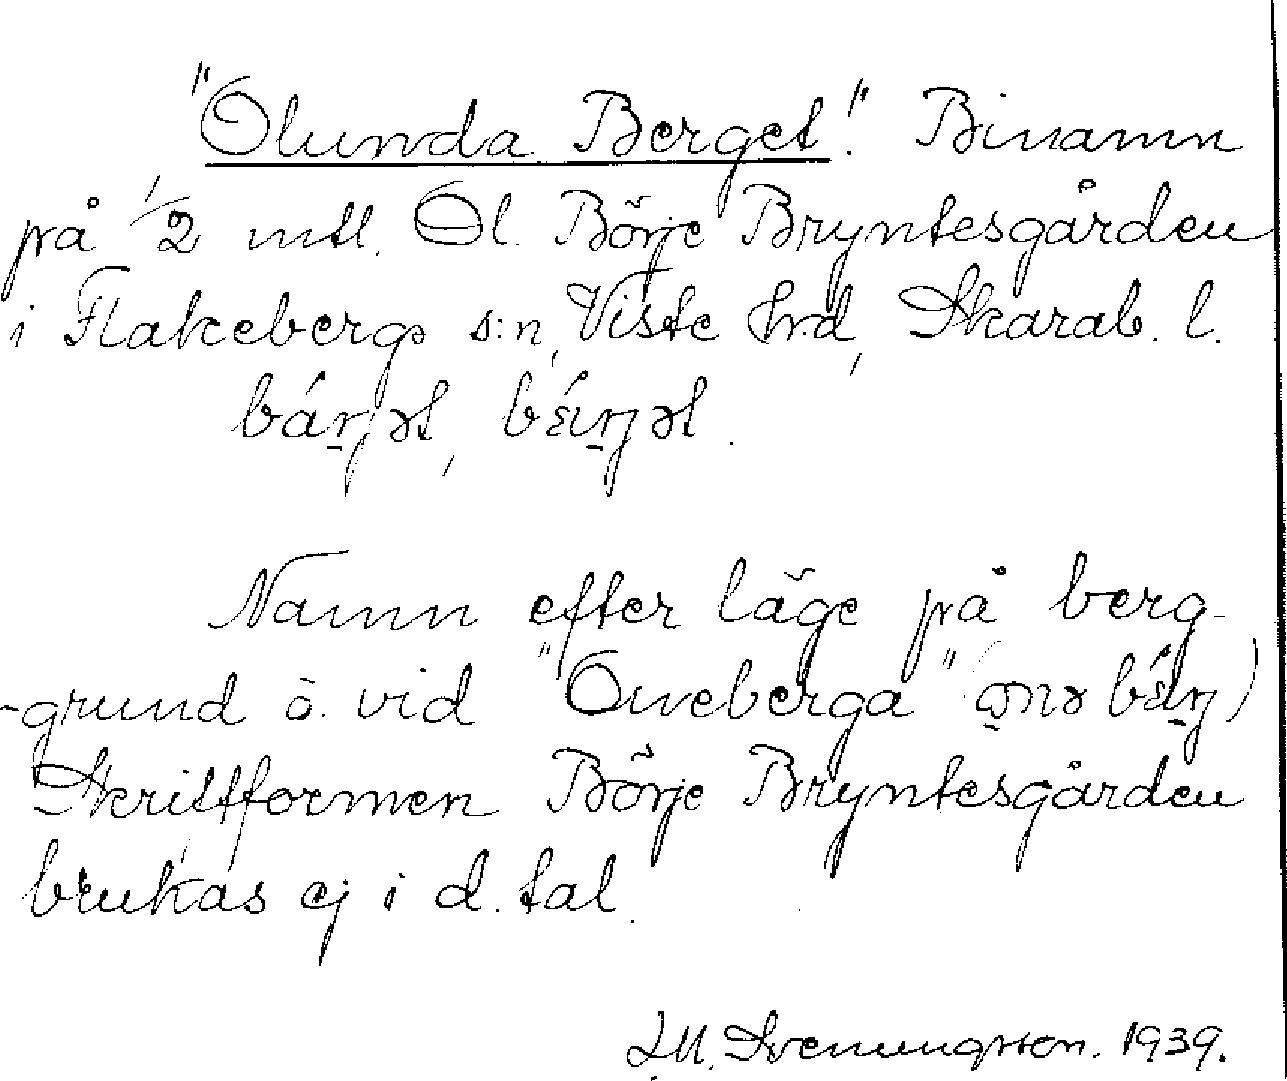 "Ölunda Berget". Binamn
på 1/2 mtl. Öl. Börje Bryntesgården
i Flakebergs s:n, Viste hrd, Skarab. l.
bárjət, bǽrjət.
Namn efter läge på berg-
-grund ö. vid "Öneberga" (
Skriftformen Börje Bryntesgården
brukas ej i d. tal.
Svenungsson. 1939.